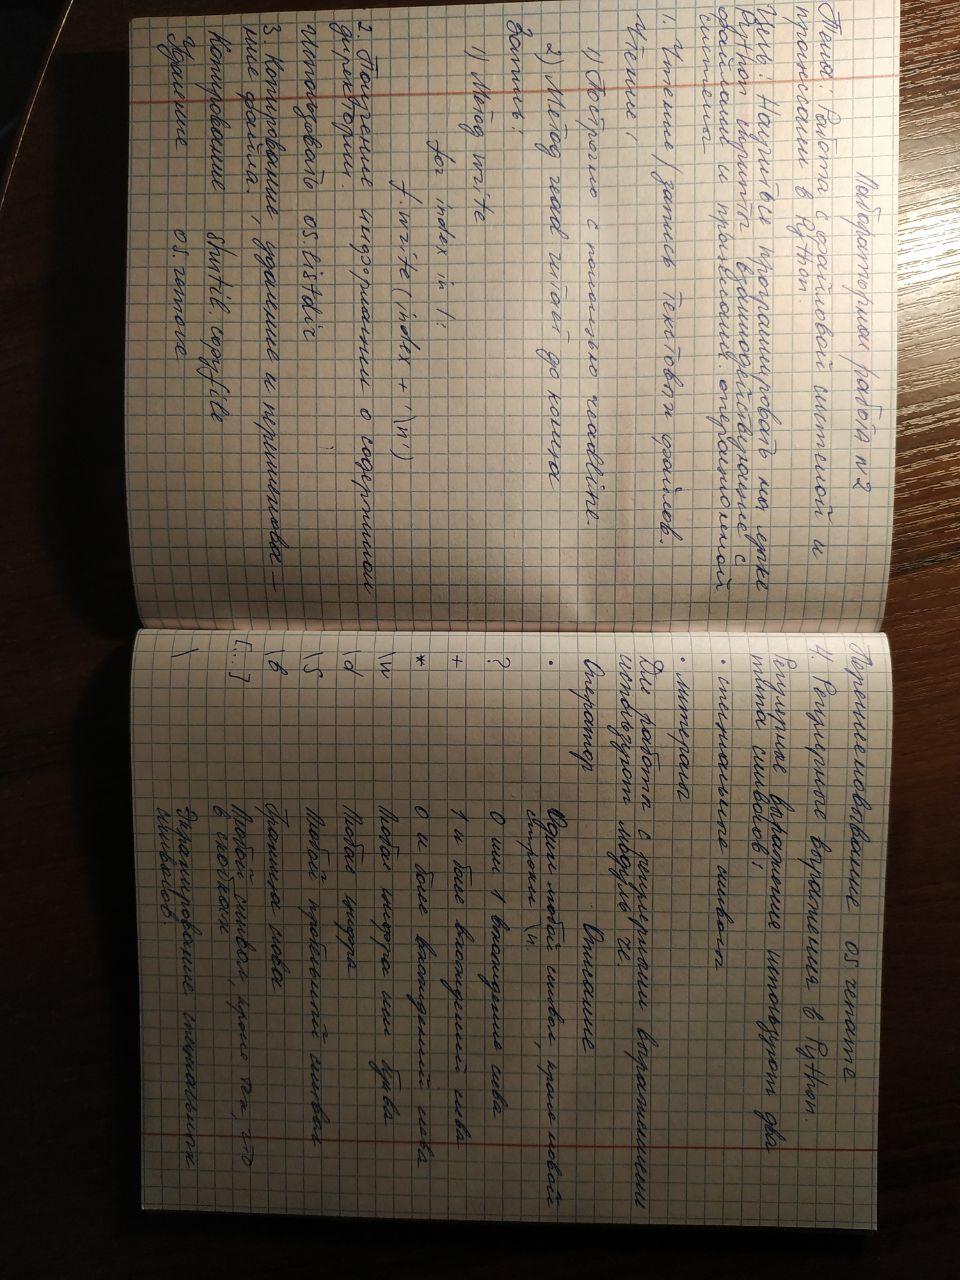 Лабораторная работа №2
Тема: Работа с файловой системой и
процессами в Python.
Цель: Научиться программировать на языке
Python скрипты взаимодействующие с
файлами и процессами операционной
системы
1. Чтение/запись текстовых файлов.
Чтение:
1) Построчно с помощью readline.
2) Метод read читает до конца
Запись:
1) Метод write
for index in l:
f.write(index + '\n')
2. Получение информации о содержимом
директории.
Использовать os.listdir
3. Копирование, удаление и переименова-
ние файла.
Копирование shutil.copyfile
Удаление os.remove
Переименовывание os.rename
4. Регулярные выражения в Python.
Регулярные выражения используют два
типа символов:
• специальные символы
• литералы
Для работы с регулярными выражениями
используют модуль re.
Оператор Описание
. Один любой символ, кроме новой
строки \n.
? 0 или 1 вхождение слева
+ 1 и более вхождений слева
* 0 и более вхождений слева
\w Любая цифра или буква
\d Любая цифра
\S Любой пробельный символ
\b Граница слова
[...] Любой символ, кроме тех, что
в скобках
\ Экранирование специальных
символов.